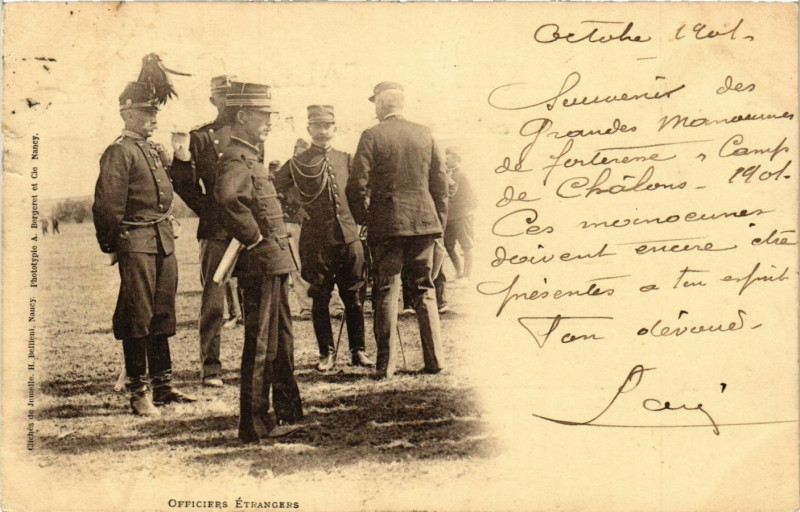 Octobre 1901-
Souvenir des
Grandes Manoeuvres
de forteresse, Camp
de Châlons - 1901-
Ces manoeuvres
doivent encore être
présentes a ton esprit
Ton dévoué-
Clichés de Jumelle. H. Bellieni, Nancy. Phototypie A. Bergeret et Cie Nancy.
OFFICIERS ÉTRANGERS